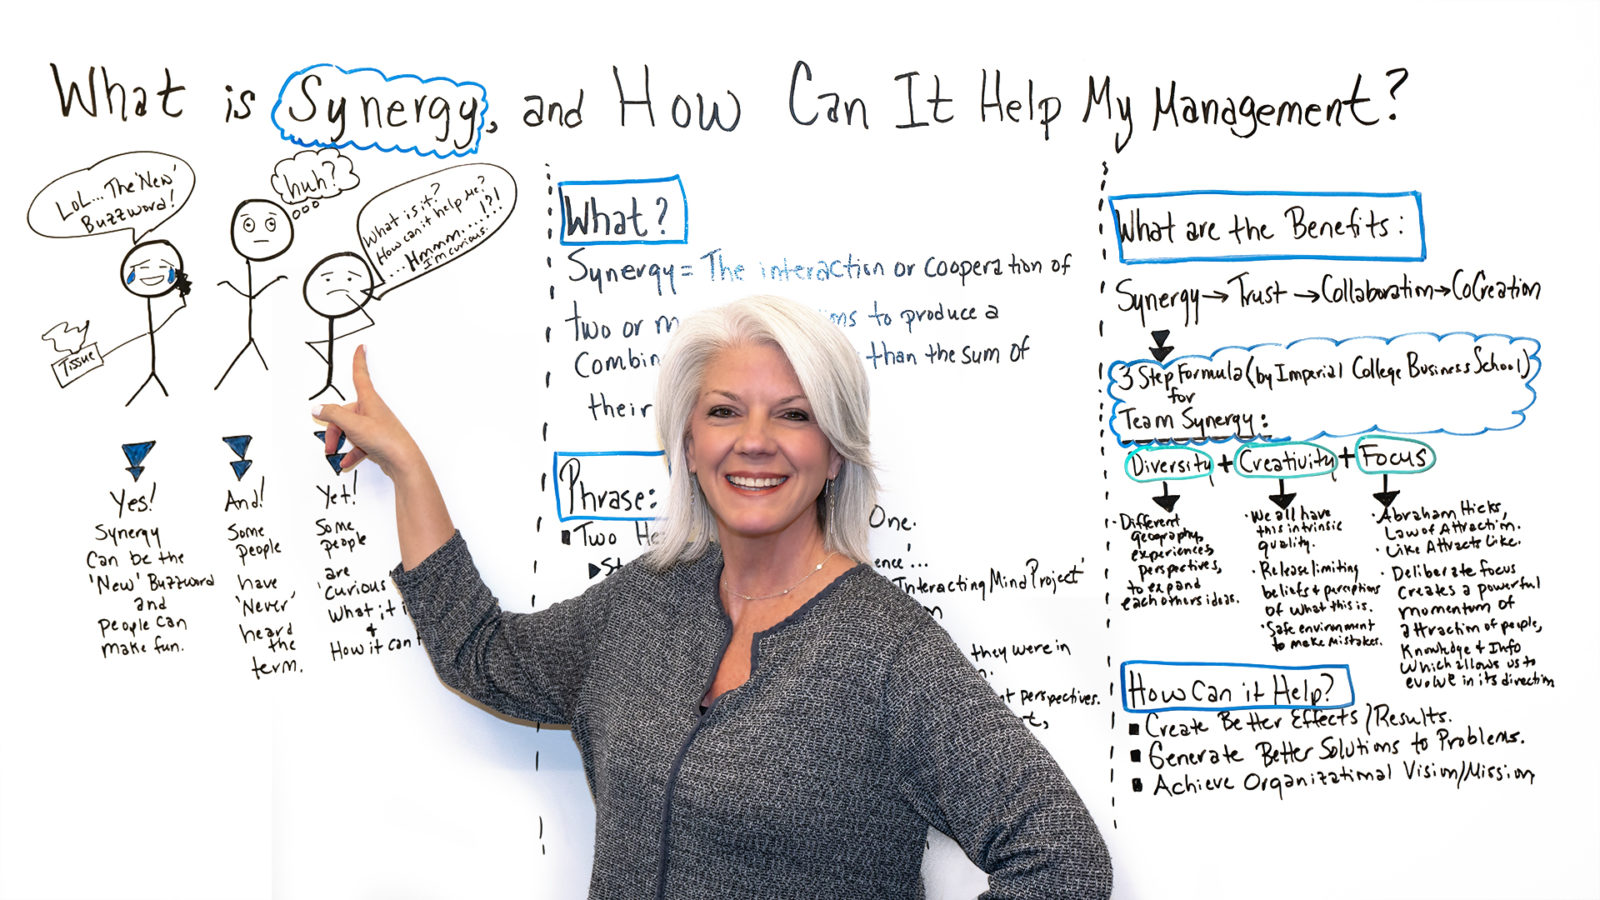 What is Synergy, and How Can It Help My Management?
LOL... The 'New'
Buzzword!
huh?
What is it?
How can it help me?
...Hmmm.....!?!
I'm curious.
Tissue
Yes!
Synergy
Can be the
'New' Buzzword
and
people can
make fun.
And!
Some
people
have
'Never'
heard
the
term.
Yet!
Some
people
are
'curious'
what it i
&
How it can
What?
Synergy = The interaction or cooperation of
two or m
ons to produce a
Combin
than the sum of
their
Phrase:
Two He
One.
St
ence'...
Interacting Mind Project'
they were in
perspectives.
What are the Benefits:
Synergy → Trust → Collaboration → CoCreation
3 Step Formula (by Imperial College Business School)
for
Team Synergy:
Diversity + Creativity + Focus
· Different
geography,
experiences,
perspectives,
to expand
each others ideas.
· We all have
this intrinsic
quality.
· Release limiting
beliefs & perceptions
of what this is.
· Safe environment
to make mistakes.
· Abraham Hicks,
Law of Attraction.
· Like Attracts Like.
· Deliberate focus
creates a powerful
momentum of
attraction of people,
Knowledge & Info
which allows us to
evolve in its direction
How Can it Help?
■ Create Better Effects/Results.
■ Generate Better Solutions to Problems.
■ Achieve Organizational Vision/Mission